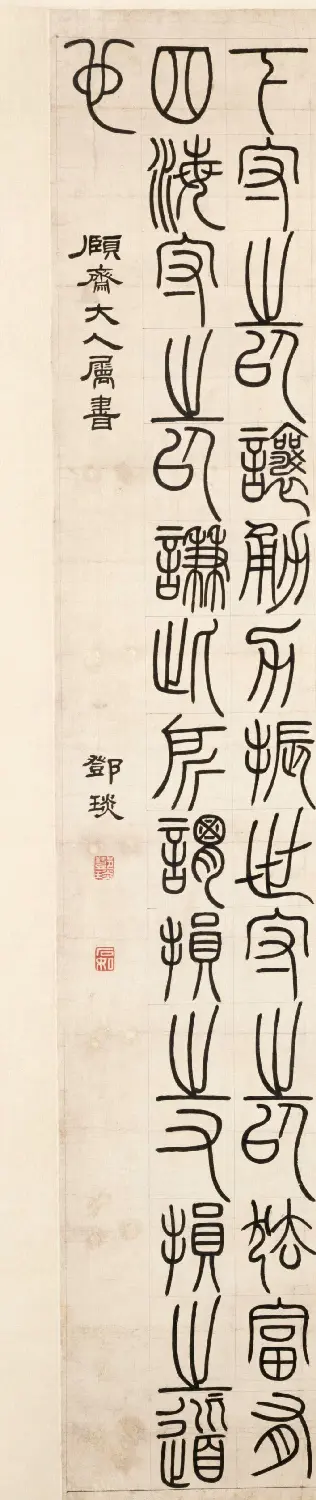 下守之以讓勇力振世守之以怯富有
四海守之以謙此所謂損之又損之道
也
頤齋大人屬書
鄧琰